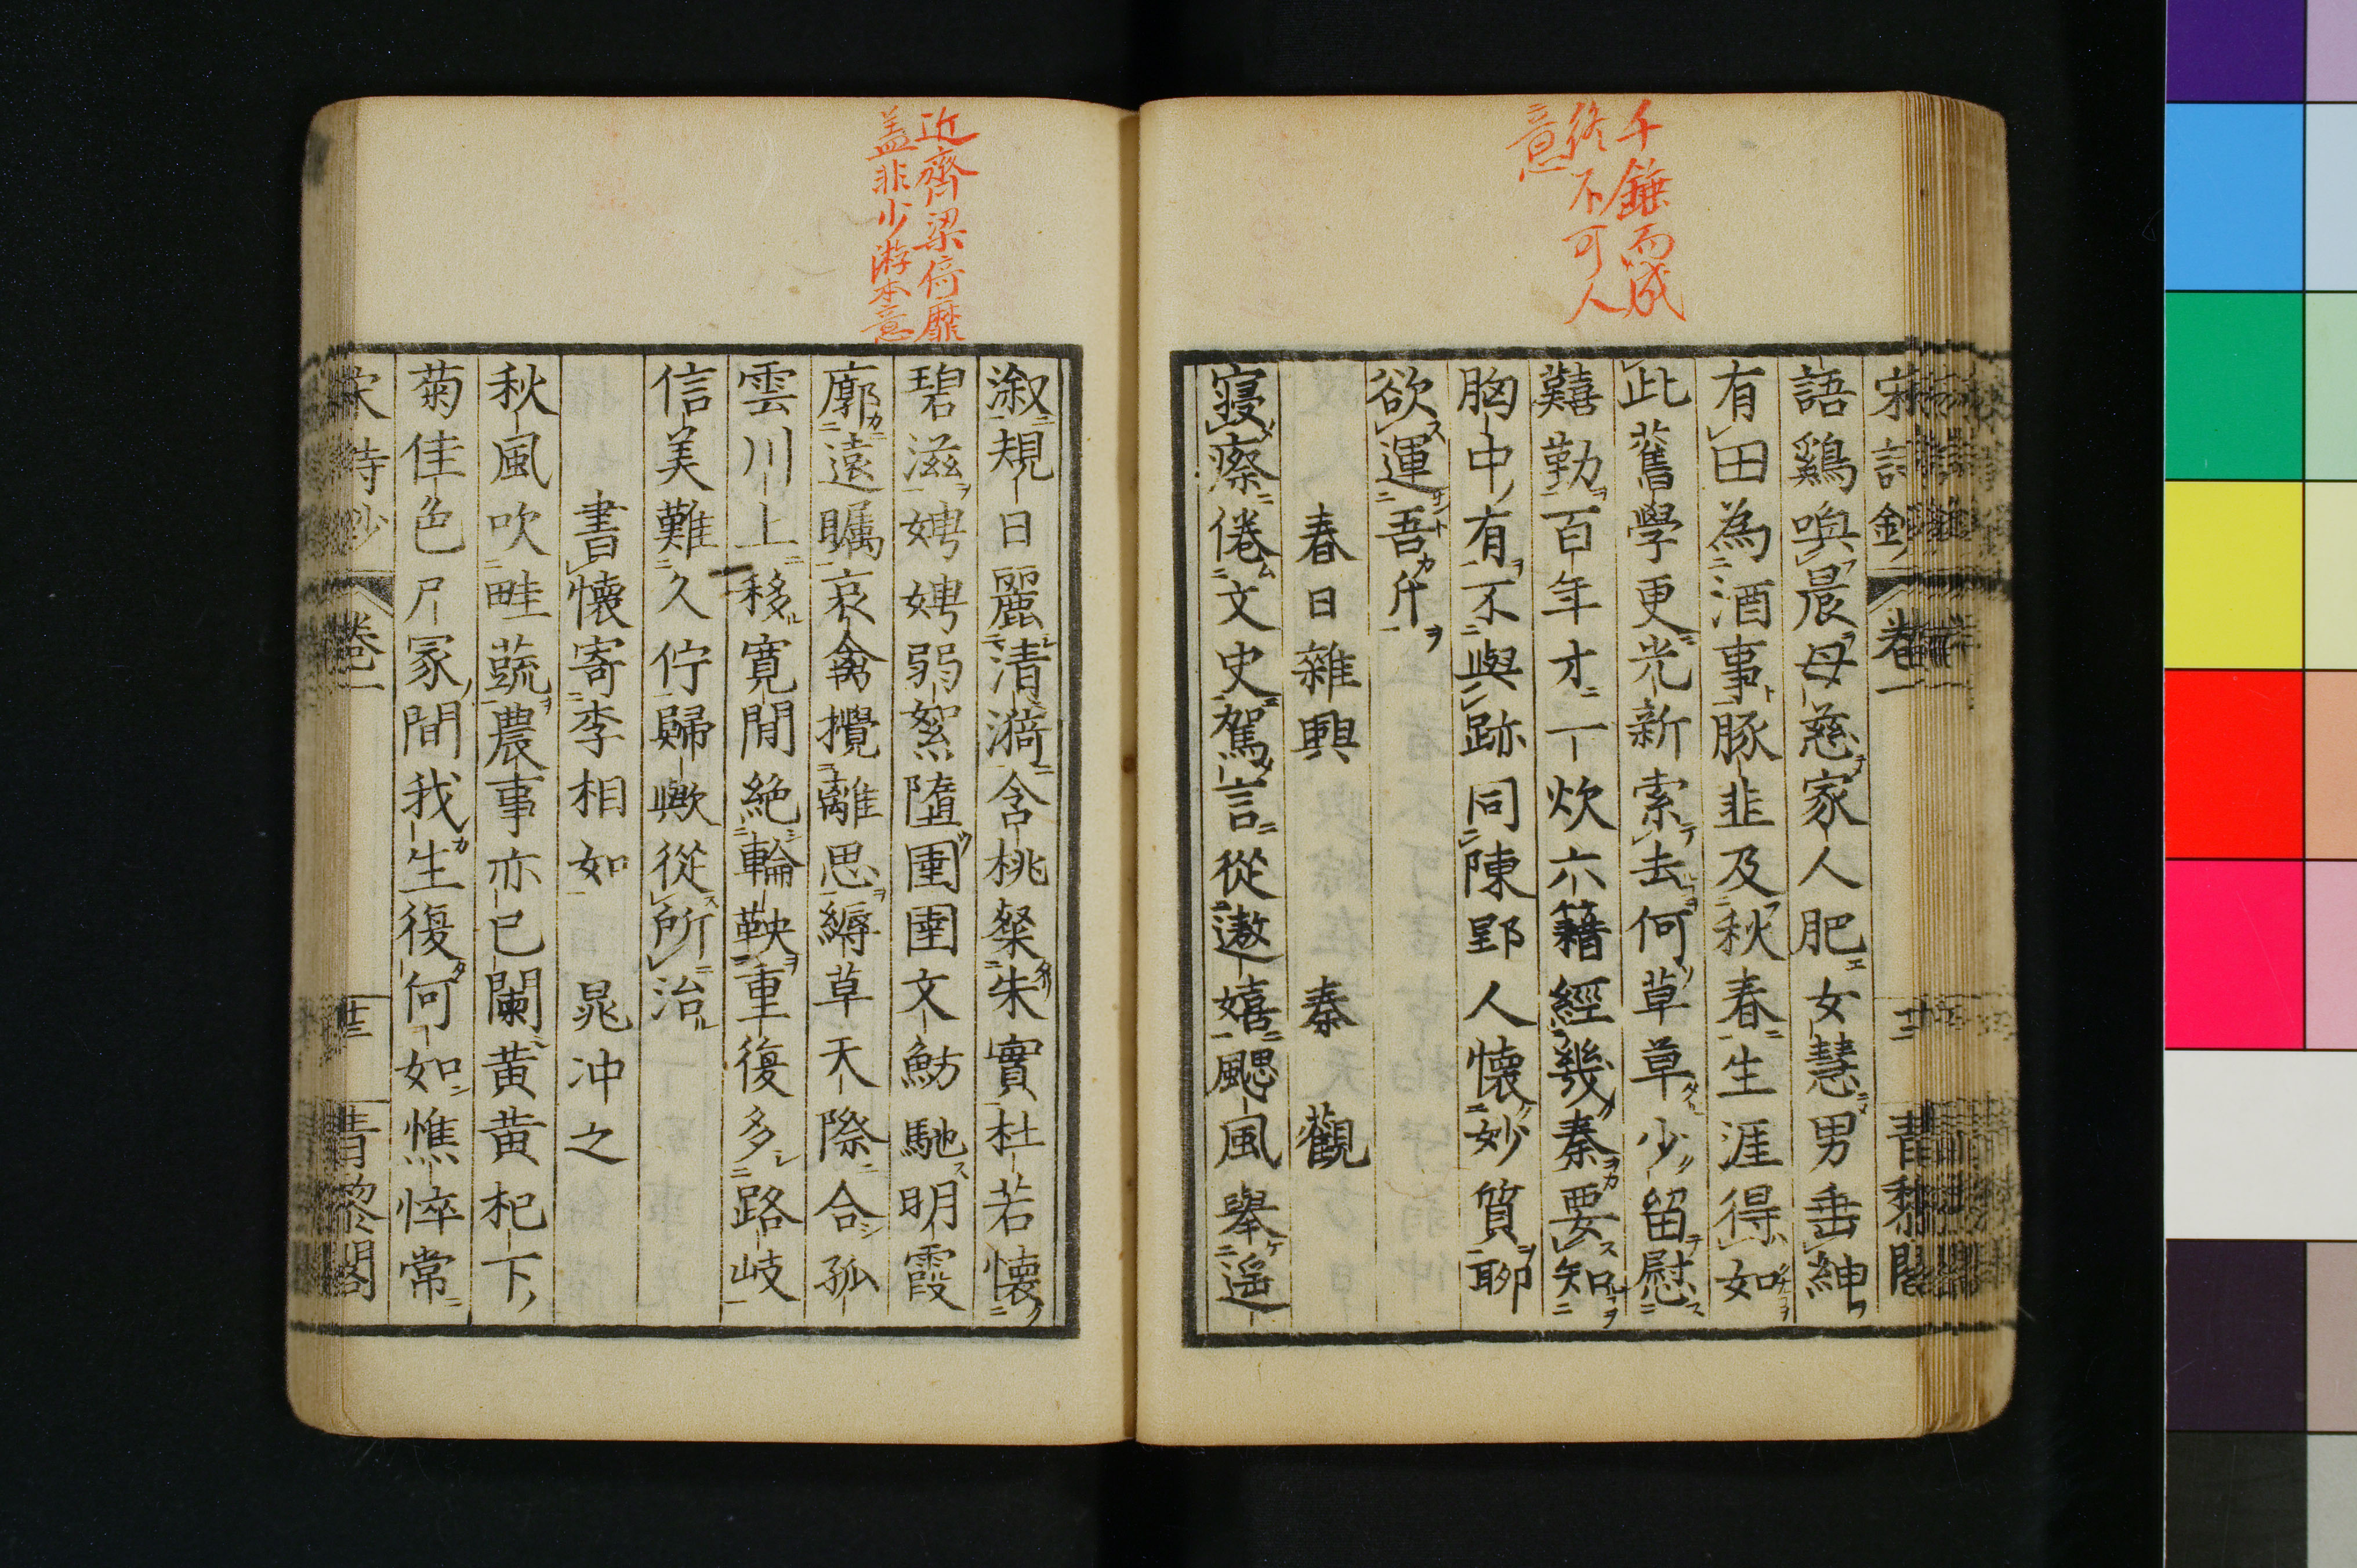 千錘而成
終不可人
意
宋詩鈔 卷一 十二 青藜閣
語鷄喚晨母慈家人肥女慧男垂紳
有田為酒事豚韭及秋春生涯得如
此舊學更光新索去何草草少留慰
囏勤百年才一炊六籍經幾秦要知
胸中有不與跡同陳郢人懷妙質聊
欲運吾斤
春日雜興 秦觀
寢瘵倦文史駕言從遨嬉颸風舉遥
溆規日麗清漪含桃粲朱實杜若懷
碧滋娉娉弱絮墮圉圉文魴馳明霞
廓遠矚哀禽攪離思縟草天際合孤
雲川上移寛閒絶輪鞅重復多路岐
信美難久佇歸歟從所治
書懷寄李相如 晁冲之
秋風吹畦蔬農事亦已闌黄黄杞下
菊佳色尸冢間我生復何如憔悴常
宋詩鈔 卷一 廿三 青藜閣
近齊梁倚靡
盖非少游本意